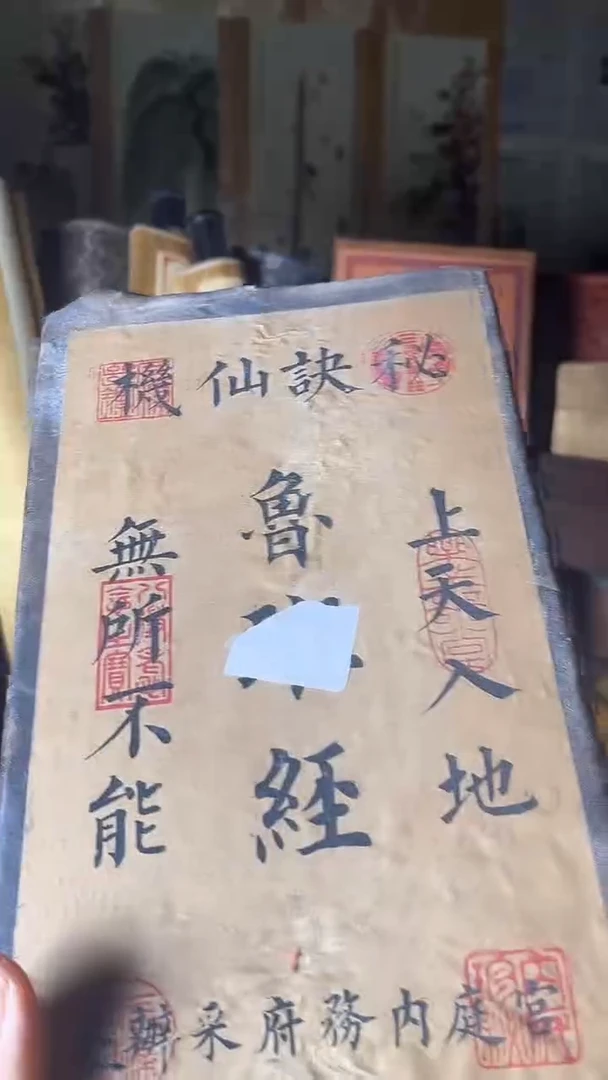 秘訣仙機
上天入地
魯
經
無所不能
宮庭内務府采辦